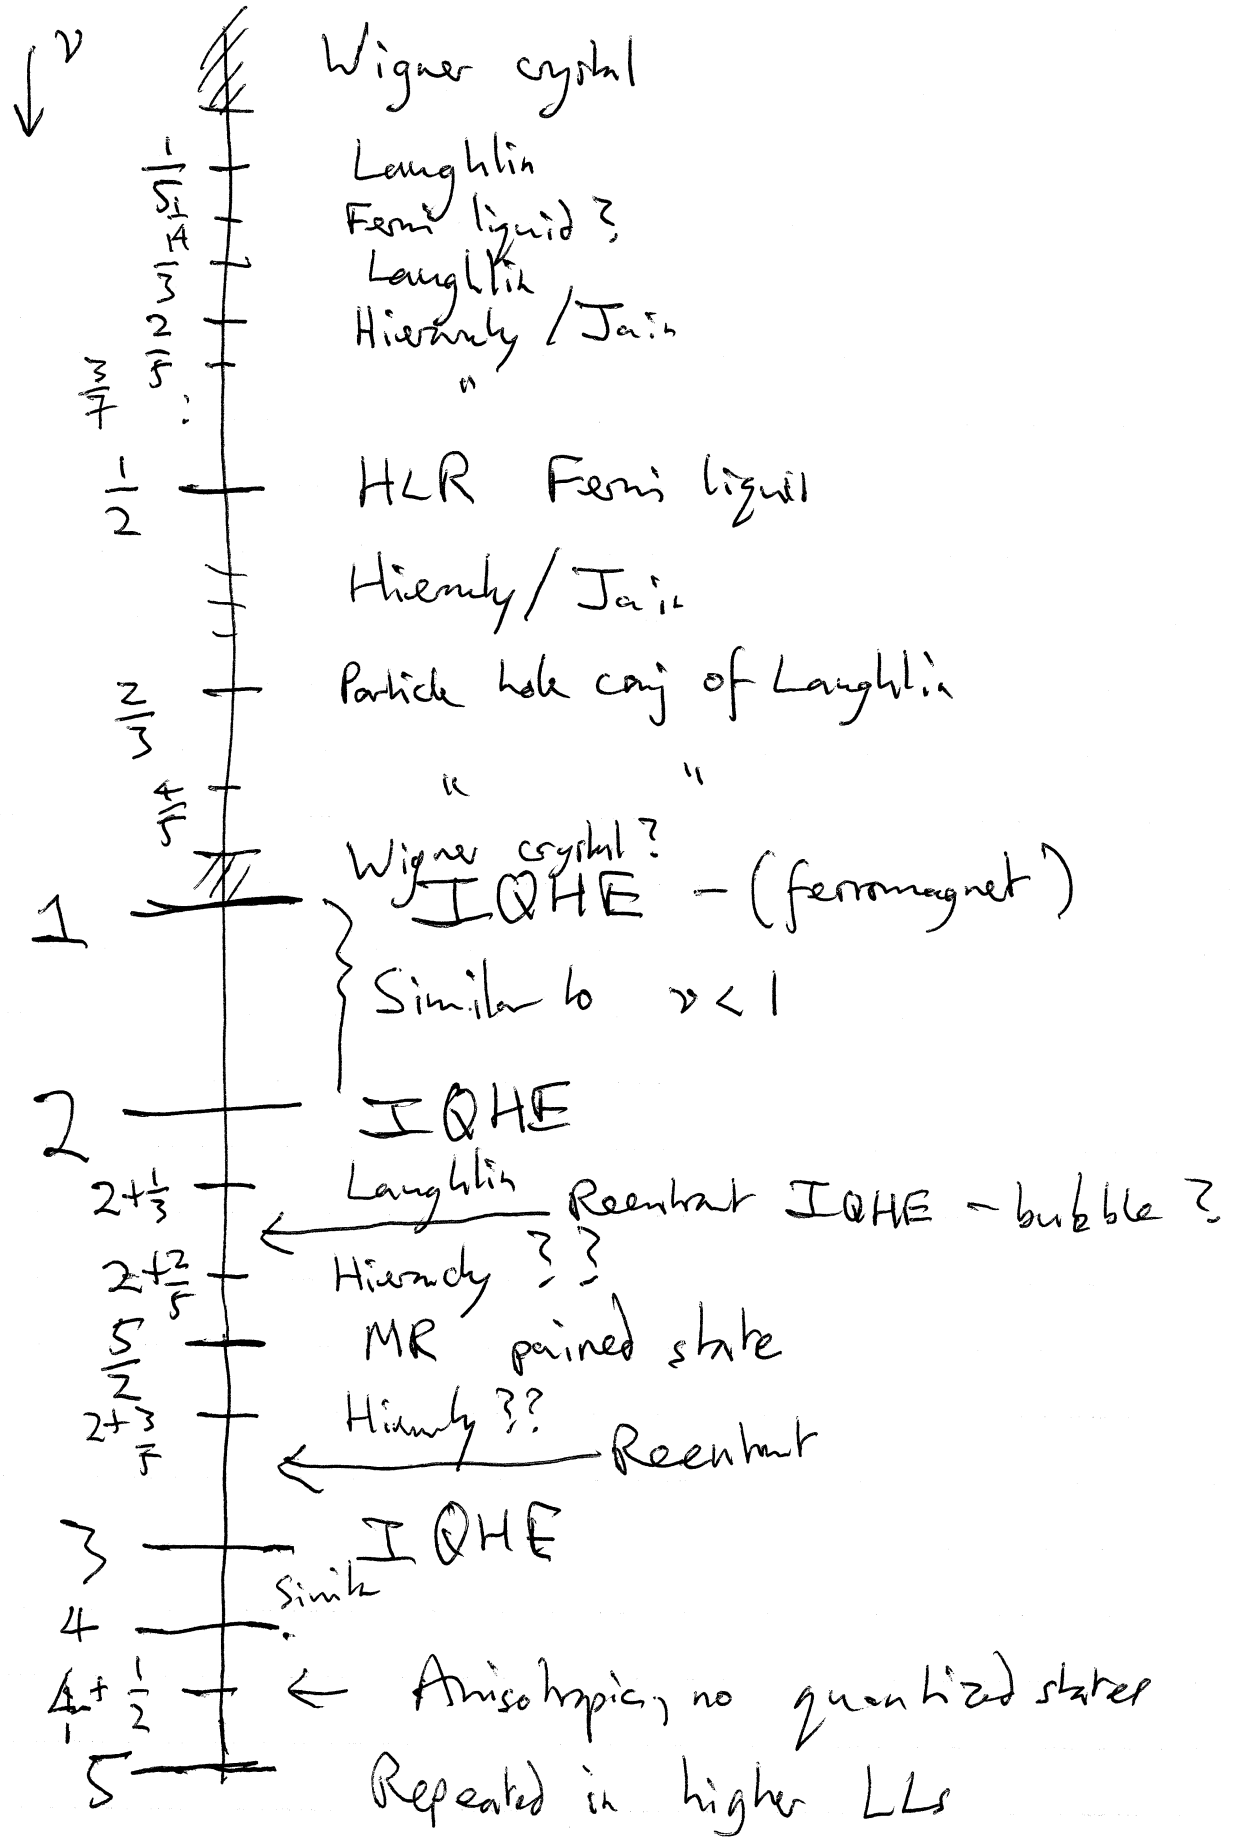 ↓ ν
Wigner crystal
1/5 Laughlin
1/4 Fermi liquid?
1/3 Laughlin
2/5 Hierarchy / Jain
3/7 "
:
1/2 HLR Fermi liquid
Hierarchy / Jain
2/3 Particle hole conj of Laughlin
4/5 " "
Wigner crystal?
1 IQHE - (ferromagnet)
Similar to ν < 1
2 IQHE
2+1/3 Laughlin
← Reentrant IQHE - bubble?
2+2/5 Hierarchy ??
5/2 MR paired state
2+3/5 Hierarchy ??
← Reentrant
3 IQHE
Similar
4
4+1/2 ← Anisotropic, no quantized states
5 Repeated in higher LLs